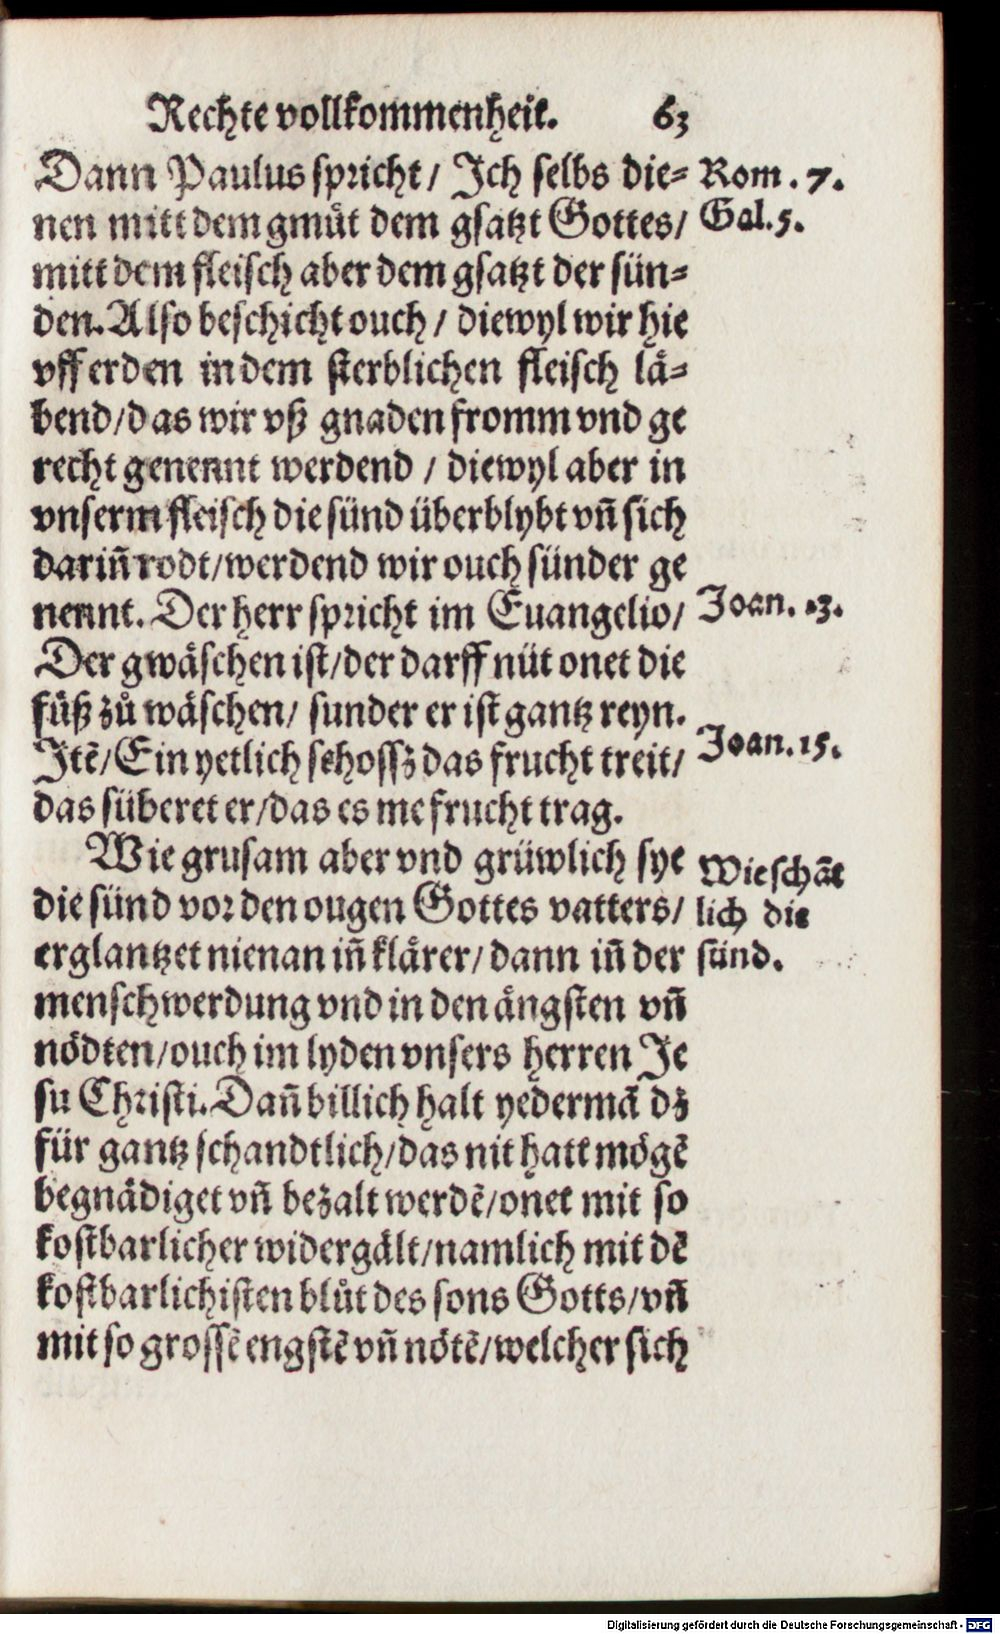 Rechte vollkommenheit. 63
Dann Paulus spricht / Ich selbs die= Rom. 7.
nen mitt dem gmuͤt dem gsatzt Gottes / Gal. 5.
mitt dem fleisch aber dem gsatzt der sün=
den. Also beschicht ouch / diewyl wir hie
vff erden in dem sterblichen fleisch laͤ=
bend / das wir vß gnaden fromm vnd ge
recht genennt werdend / diewyl aber in
vnserm fleisch die sünd überblybt vñ sich
dariñ rodt / werdend wir ouch sünder ge
nennt. Der herr spricht im Euangelio / Joan. 13.
Der gwaͤschen ist / der darff nüt onet die
fuͤß zuͦ waͤschen / sunder er ist gantz reyn.
Itē / Ein yetlich schossz das frucht treit / Joan. 15.
das süberet er / das es me frucht trag.
Wie grusam aber vnd grüwlich sye Wie schãt
die sünd vor den ougen Gottes vatters / lich die
erglantzet nienan iñ klaͤrer / dann iñ der sünd.
menschwerdung vnd in den aͤngsten vñ
noͤdten / ouch im lyden vnsers herren Je
su Christi. Dañ billich halt yedermã dz
für gantz schandtlich / das nit hatt moͤgē
begnaͤdiget vñ bezalt werdē / onet mit so
kostbarlicher widergaͤlt / namlich mit dē
kostbarlichisten bluͦt des sons Gotts / vñ
mit so grossē engstē vñ noͤtē / welcher sich
Digitalisierung gefördert durch die Deutsche Forschungsgemeinschaft - DFG